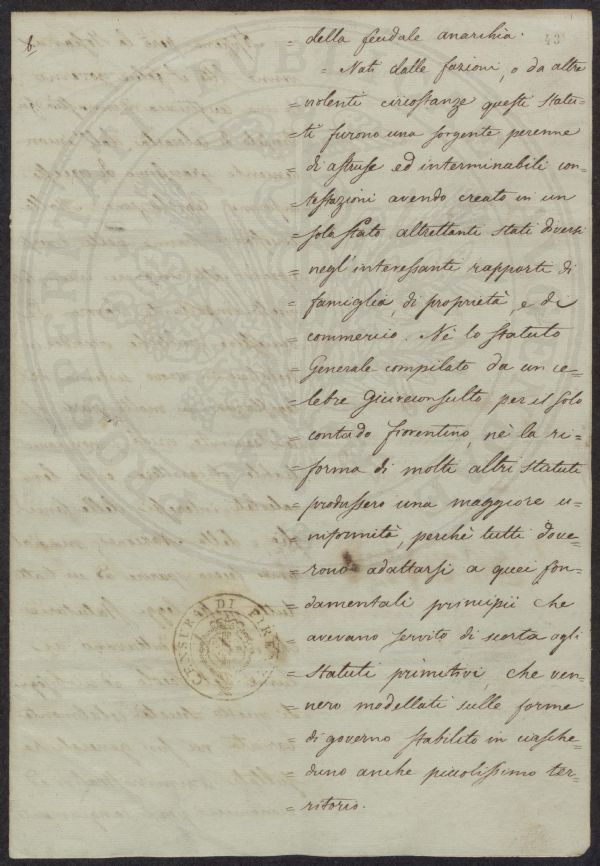 6.
43
= della feudale anarchia.
= Nati dalle fazioni, o da altre
= violenti circostanze questi statu=
= ti furono una sorgente perenne
= di astruse ed interminabili con=
= testazioni avendo creato in un
= solo Stato altrettante stati diversi
= negl'interessanti rapporti di
= famiglia, di proprietà, e di
= commercio. Nè lo Statuto
= Generale compilato da un ce=
= lebre Giureconsulto per il solo
= contado fiorentino, nè la ri=
= forma di molti altri statuti
= produssero una maggiore u=
= niformità, perchè tutti dove=
= rono adattarsi a quei fon=
= damentali principii che
= avevano servito di scorta agli
= statuti primitivi, che ven=
= nero modellati sulle forme
= di governo stabilito in ciasche=
= duno anche piccolissimo ter=
= ritorio.
CENSURA DI FIRENZE